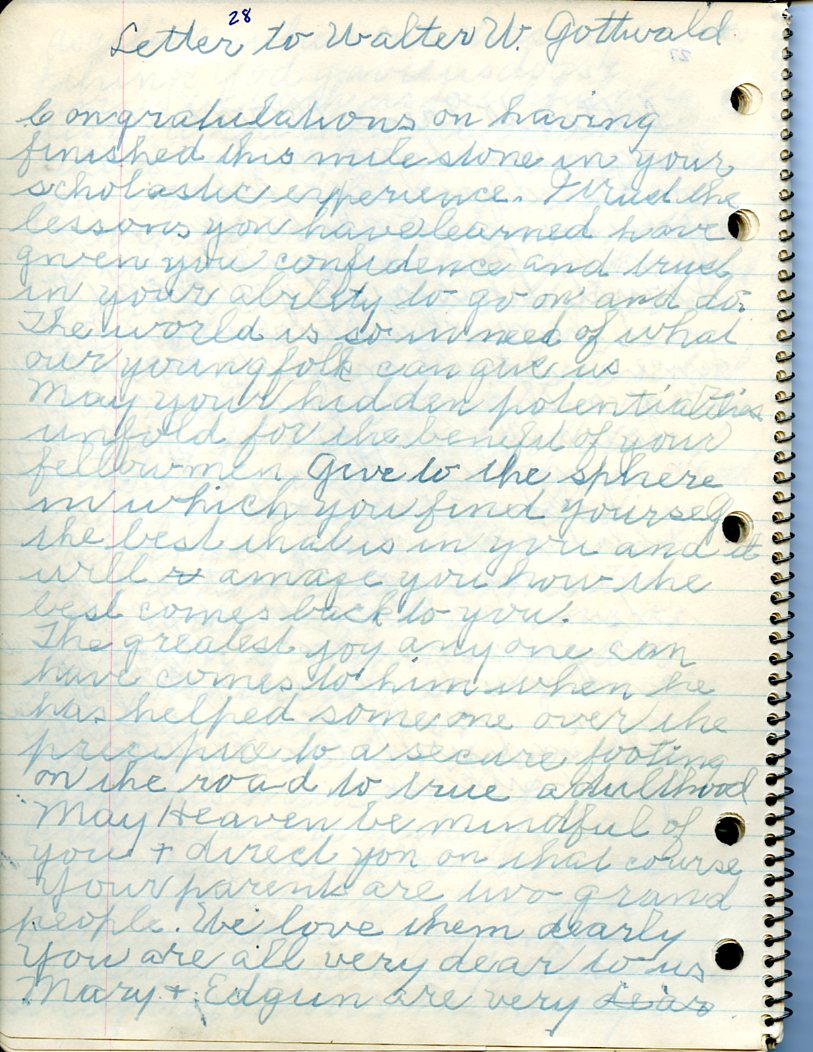 28
Letter to Walter W. Gottwald
Congratulations on having
finished this mile stone in your
scholastic experience. I trust the
lessons you have learned have
given you confidence and trust
in your ability to go on and do.
The world is so in need of what
our young folk can give us
May your hidden potentialities
unfold for the benefit of your
fellowmen. Give to the sphere
in which you find yourself
the best that is in you and it
will amaze you how the
best comes back to you.
The greatest joy anyone can
have comes to him when he
has helped some one over the
precipice to a secure footing
on the road to true adulthood
May Heaven be mindful of
you + direct you on that course
Your parents are two grand
people. We love them dearly
You are all very dear to us
Mary + Edgun are very dear